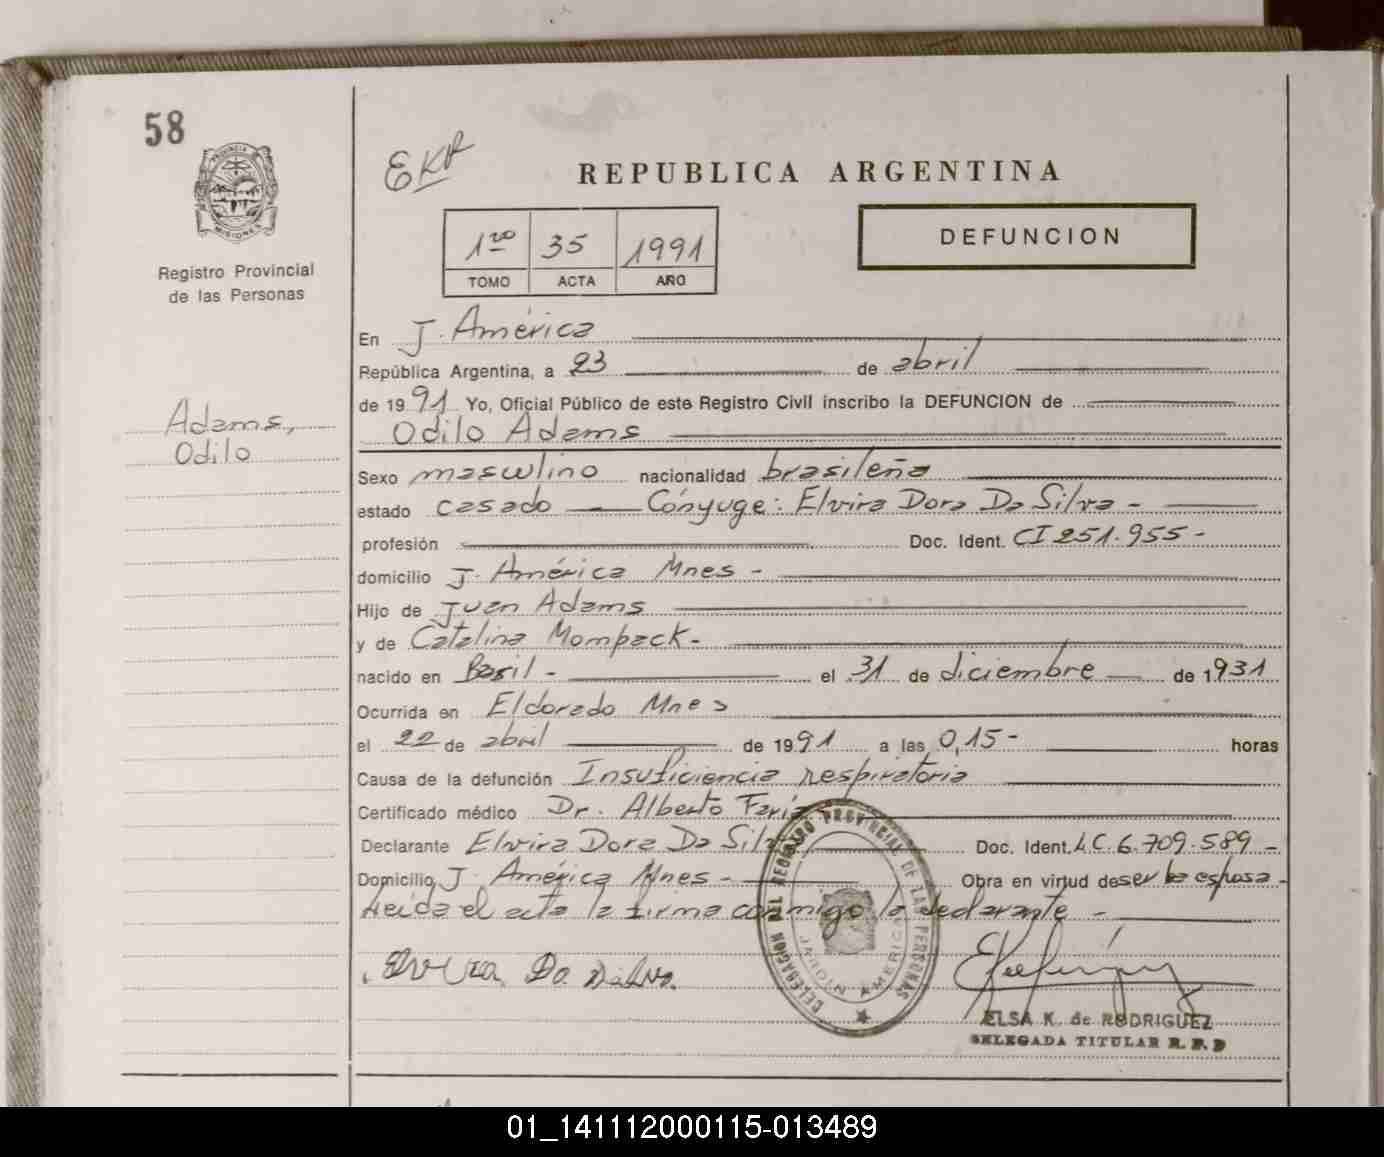 58
PROVINCIA DE MISIONES
Registro Provincial
de las Personas
Adams,
Odilo
EKR
REPUBLICA ARGENTINA
1ro 35 1991
TOMO ACTA AÑO
DEFUNCION
En J. América
República Argentina, a 23 de abril
de 1991 Yo, Oficial Público de este Registro Civil inscribo la DEFUNCION de
Odilo Adams
Sexo masculino nacionalidad brasileña
estado casado — Cónyuge: Elvira Dora Da Silva -
profesión Doc. Ident. CI 251.955-
domicilio J. América Mnes -
Hijo de Juan Adams
y de Catalina Mompack-
nacido en Basil - el 31 de diciembre de 1931
Ocurrida en Eldorado Mnes
el 22 de abril de 1991 a las 0,15- horas
Causa de la defunción Insuficiencia respiratoria
Certificado médico Dr. Alberto Faria
Declarante Elvira Dora Da Silva Doc. Ident. L.C. 6.709.589 -
Domicilio J. América Mnes - Obra en virtud de ser la esposa -
Leida el acta la firma conmigo la declarante -
DELEGACION DEL REGISTRO PROVINCIAL DE LAS PERSONAS
JARDIN AMERICA
Elvira Da Silva.
ELSA K. de RODRIGUEZ
DELEGADA TITULAR R. P. P
01_141112000115-013489